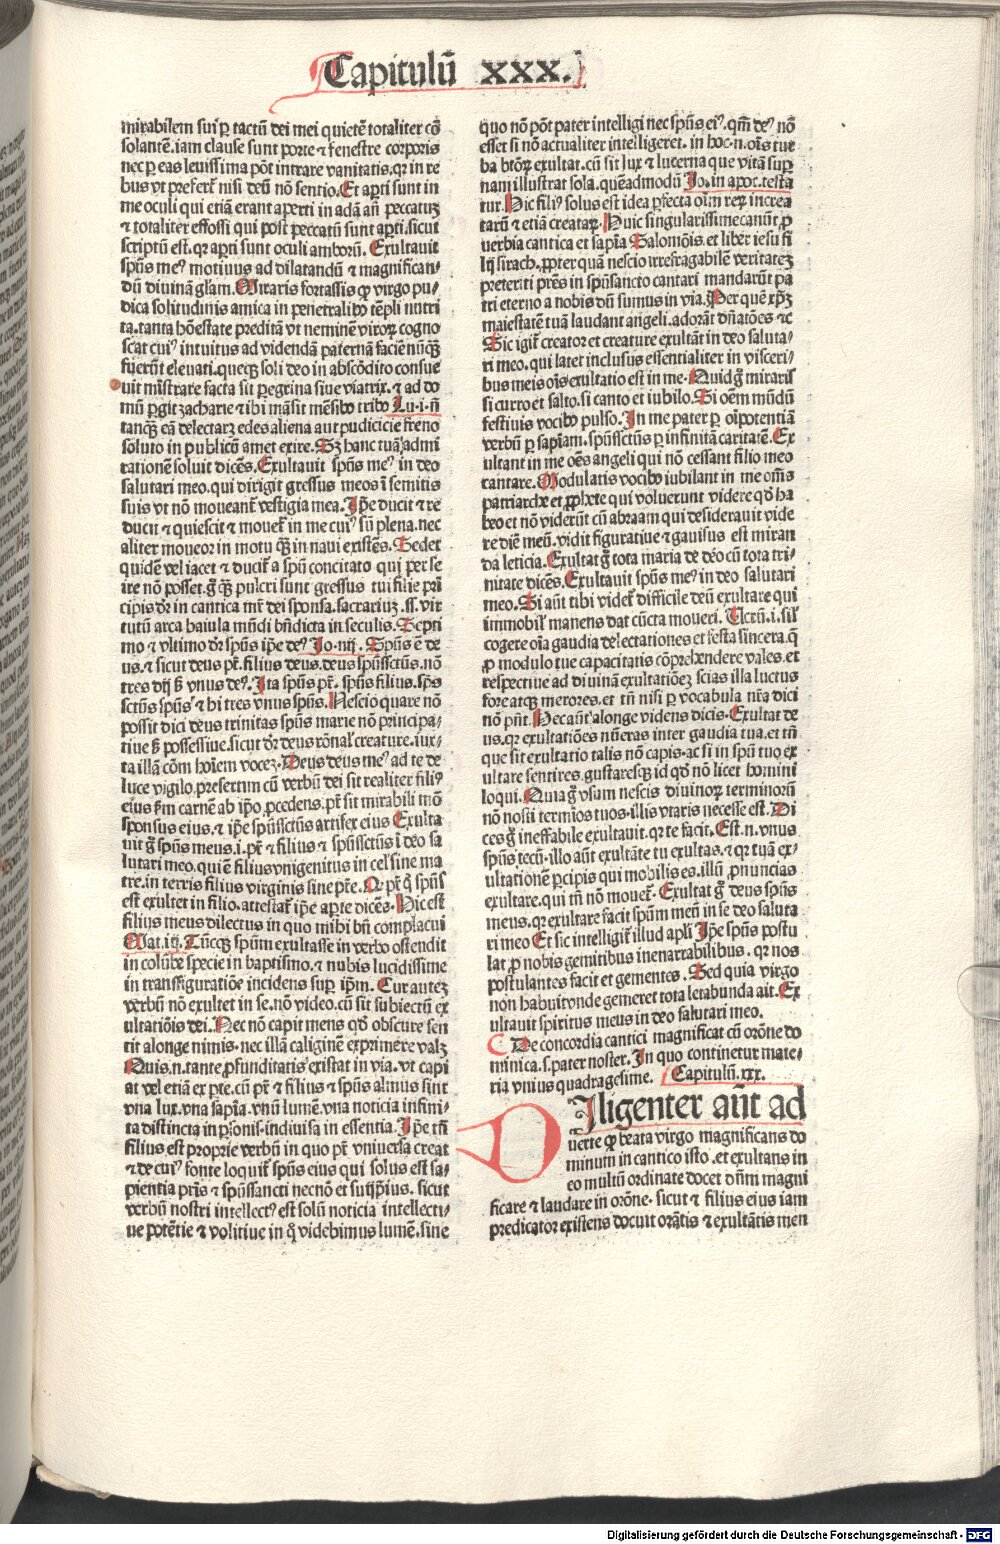 Capitulū xxx.
mirabilem sui ꝑ tactū dei mei quietē totaliter cō
solantē. iam clause sunt porte ⁊ fenestre corporis
nec ꝑ eas leuissima pōt intrare vanitatis. qr in re
bus vt prefert᷑ nisi deū nō sentio. Et aꝑti sunt in
me oculi qui etiā erant aperti in adā añ peccatuꝫ
⁊ totaliter effossi qui post peccatū sunt aꝑti. sicut
scriptū est. qr aꝑti sunt oculi amborū. Exultauit
spūs meꝰ motiuus ad dilatandū ⁊ magnifican/
dū diuinā gl̄am. Miraris fortassis ꝙ virgo pu/
dica solitudinis amica in penetralibꝰ tēpli nutri
ta. tanta hōestate preditā vt neminē viroꝝ cogno
scat cuiꝰ intuitus ad videndā paternā faciē nūqꝫ
fuerūt eleuati. quecqꝫ soli deo in abscōdito consue
uit mīstrare facta sit ꝑegrina siue viatrix. ⁊ ad do
mū ꝑgit zacharie ⁊ ibi māsit mēsibꝰ tribꝰ Lu. i. ñ
tanqꝫ eā delectarꝫ edes aliena aut pudicicie freno
soluto in publicū amet exire. Sꝫ hanc tuā admi
rationē soluit dicēs. Exultauit spūs meꝰ in deo
salutari meo. qui dirigit gressus meos ī semitis
suis vt nō moueant᷑ vestigia mea. Ip̄e ducit ⁊ re
ducit ⁊ quiescit ⁊ mouet᷑ in me cuiꝰ sū plena. nec
aliter moueor in motu qꝫ in naui existēs. Sedet
quidē vel iacet ⁊ ducit᷑ a spū concitato qui per se
ire nō posset. g̊ qꝫ pulcri sunt gressus tui filie prī
cipis dr̄ in cantica mr̄ dei sponsa. sacrariuꝫ .ss. vir
tutū arca baiula mūdi bn̄dicta in seculis. Septi
mo ⁊ vltimo dr̄ spūs ip̄e deꝰ Jo. iiij. Spūs ē de
us. ⁊ sicut deus pr̄. filius deus. deus spūssctūs. nō
tres dij ꝫ vnus deꝰ. Ita spūs pr̄. spūs filius. spūs
sctūs spūs ⁊ hi tres vnus spūs. Nescio quare nō
possit dici deus trinitas spūs marie nō principa/
tiue ꝫ possessiue. sicut dr̄ deus rōnal᷑ creature. iux/
ta illā cōm hoīem voceꝫ. Deus deus meꝰ ad te de
luce vigilo. presertim cū verbū dei sit realiter filiꝰ
eius ẜm carnē ab ip̄o ꝓcedens. pr̄ sit mirabili mō
sponsus eius. ⁊ ip̄e spūssctūs artifex eius Exulta
uit g̊ spūs meus. i. pr̄ ⁊ filius ⁊ spūssctūs ī deo sa
lutari meo. qui ē filius vnigenitus in celsine ma
tre. in terris filius virginis sine pr̄e. Qr pr̄ q̊ spūs
est exultet in filio. attestat᷑ ip̄e aꝑte dicēs. Hic est
filius meus dilectus in quo mihi bn̄ complacui
Mat. iij. Tūcqꝫ spūm exultasse in verbo ostendit
in colūbe specie in baptismo. ⁊ nubis lucidissime
in transfiguratiōe incidens suꝑ ip̄m. Cur auteꝫ
verbū nō exultet in se. nō video. cū sit subiectū ex
ultatiōis dei. Nec nō capit mens qd̊ obscure sen
tit alonge nimis. nec illā caliginē exprimere valꝫ
Quis. n. tante ꝓfunditatis existat in via. vt capi
at vel etiā ex pte. cū pr̄ ⁊ filius ⁊ spūs almus sint
vna lux. vna sapīa. vnū lumē. vna noticia infini/
ta distincta in ꝑsonis. indiuisa in essentia. Ip̄e tn̄
filius est proprie verbū in quo pr̄ vniuersa creat
⁊ de cuiꝰ fonte loquit᷑ spūs eius qui solus est sa/
pientia pr̄is ⁊ spūssancti necnō et sui ip̄ius. sicut
verbū nostri intellectꝰ est solū noticia intellecti/
ue potētie ⁊ volitiue in q̊ videbimus lumē. sine
quo nō pōt pater intelligi nec spūs eiꝰ. qm̄ deꝰ nō
esset si nō actualiter intelligeret. in hoc. n. oīs tur
ba btōꝝ exultat. cū sit lux ⁊ lucerna que vitā suꝑ
nam illustrat sola. quēadmodū Jo. in apoc. testa
tur. Hic filiꝰ solus est idea ꝑfecta oīm reꝝ increa
tarū ⁊ etiā creataꝝ. Huic singularissime canūt ꝓ
uerbia cantica et sapīa Salomōis. et liber iesu fi
lij sirach. ꝓpter quā nescio irrefragabilē veritateꝫ
preteriti pr̄es in spūsancto cantari mandarūt pa
tri eterno a nobis dū sumus in via. Per quē xp̄ꝫ
maiestatē tuā laudant angeli. adorāt dn̄atōes ⁊c
Sic igit᷑ creator et creature exultāt in deo saluta/
ri meo. qui latet inclusus essentialiter in visceri/
bus meis oīs exultatio est in me. Quid g̊ miraris
si curro et salto. si canto et iubilo. Si oēm mūdū
festiuis vocibꝰ pulso. In me pater ꝑ oīpotentiā
verbū ꝑ sapīam. spūssctūs ꝑ infinitā caritatē. Ex
ultant in me oēs angeli qui nō cessant filio meo
cantare. Modulatis vocibꝰ iubilant in me om̄s
patriarche et ꝓphete qui voluerunt videre qd̊ ha
beo et nō viderūt cū abraam qui desiderauit vide
re diē meū. vidit figuratiue ⁊ gauisus est miran
da leticia. Exultat g̊ tota maria de deo cū tota tri/
nitate dicēs. Exultauit spūs meꝰ in deo salutari
meo. Si aūt tibi videt᷑ difficile deū exultare qui
immobil᷑ manens dat cūcta moueri. Tictū. i. sil᷑
cogere oīa gaudia delectationes et festa sincera. q̄
ꝓ modulo tue capacitatis cōprehendere vales. et
respectiue ad diuinā exultatiōeꝫ scias illa luctus
fore atqꝫ merores. et tn̄ nisi ꝑ vocabula nr̄a dici
nō pn̄t. Hec aūt alonge videns dicis. Exultat de
us. qr exultatiōes nūeras inter gaudia tua. et tn̄
que sit exultatio talis nō capis. ac si in spū tuo ex
ultare sentires. gustaresqꝫ id qd̊ nō licet homini
loqui. Quia g̊ vsum nescis diuinoꝝ terminorū
nō nosti termīos tuos. illis vtaris necesse est. Di
ces g̊ ineffabile exultauit. qr te facit. Est. n. vnus
spūs tecū. illo aūt exultāte tu exultas. ⁊ qr tuā ex/
ultationē ꝑcipis qui mobilis es. illū ꝓnuncias
exultare. qui tn̄ nō mouet᷑. Exultat g̊ deus spūs
meus. qr exultare facit spūm meū in se deo saluta
ri meo Et sic intelligit᷑ illud apl̄i Ip̄e spūs postu
lat ꝓ nobis gemitibus inenarrabilibus. qr nos
postulantes facit et gementes. Sed quia virgo
non habuit vnde gemeret tota letabunda ait. Ex
ultauit spiritus meus in deo salutari meo.
De concordia cantici magnificat cū orōne do
minica. s. pater noster. In quo continetur mate/
ria vnius quadragesime. Capitulū. xxx.
DIligenter aūt ad
uerte ꝙ beata virgo magnificans do
minum in cantico isto. et exultans in
eo multū ordinate docet dn̄m magni
ficare ⁊ laudare in orōne. sicut ⁊ filius eius iam
predicator existens docuit orātis ⁊ exultātis men
Digitalisierung gefördert durch die Deutsche Forschungsgemeinschaft - DFG